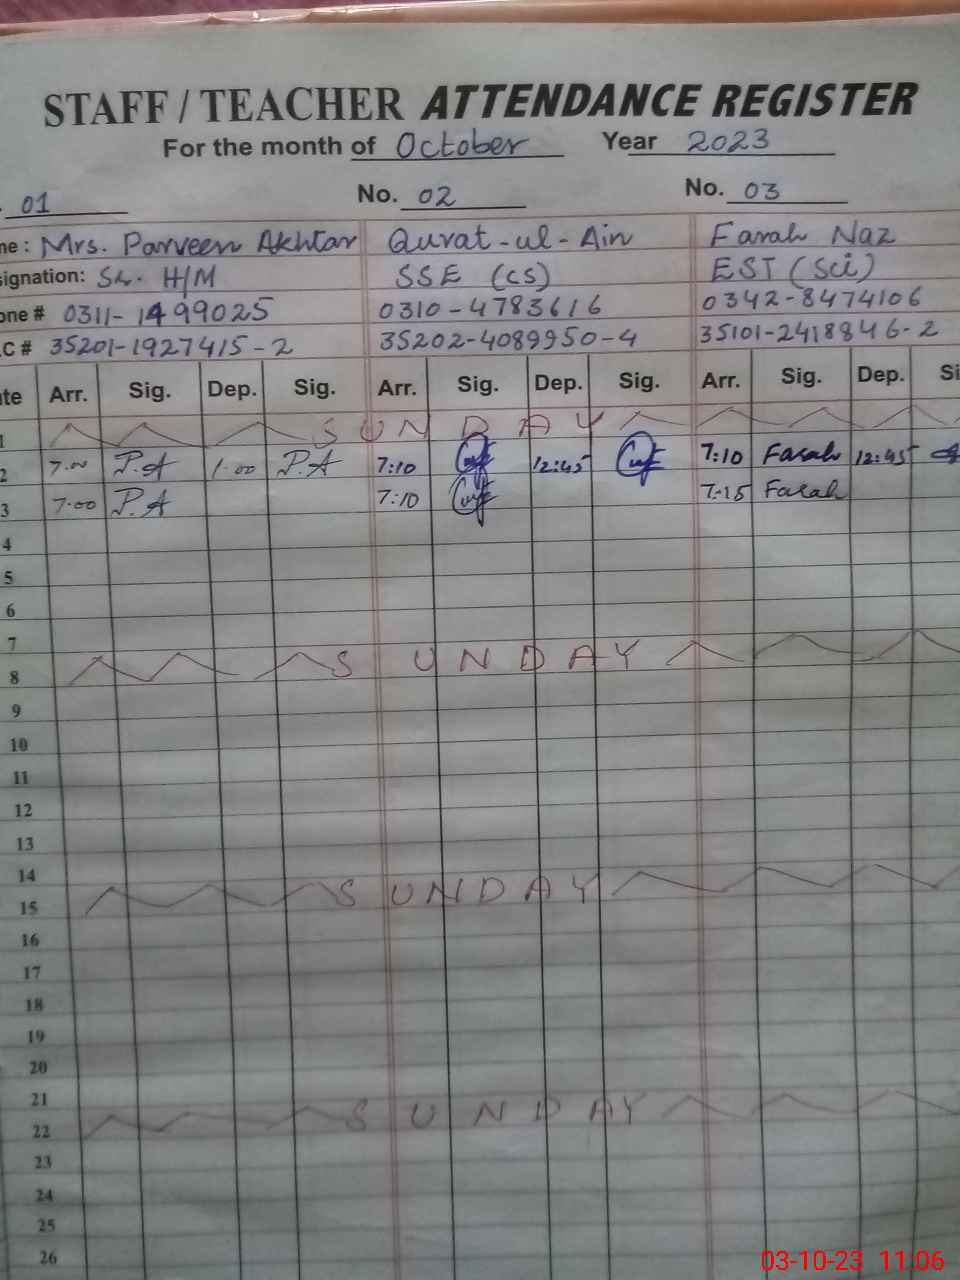 STAFF / TEACHER ATTENDANCE REGISTER
For the month of October Year 2023
01 No. 02 No. 03
me: Mrs. Parveen Akhtar Qurat-ul-Ain Farah Naz
signation: Sr. H/M SSE (CS) EST (Sci)
one # 0311-1499025 0310-4783616 0342-8474106
C # 35201-1927415-2 35202-4089950-4 35101-2418846-2
te Arr. Sig. Dep. Sig. Arr. Sig. Dep. Sig. Arr. Sig. Dep. Si
1 SUNDAY
2 7.00 P.A 1.00 P.A 7:10 12:45 7:10 Farah 12:45
3 7.00 P.A 7:10 7.15 Farah
4
5
6
7
8 SUNDAY
9
10
11
12
13
14
15 SUNDAY
16
17
18
19
20
21
22 SUNDAY
23
24
25
26
03-10-23 11:06